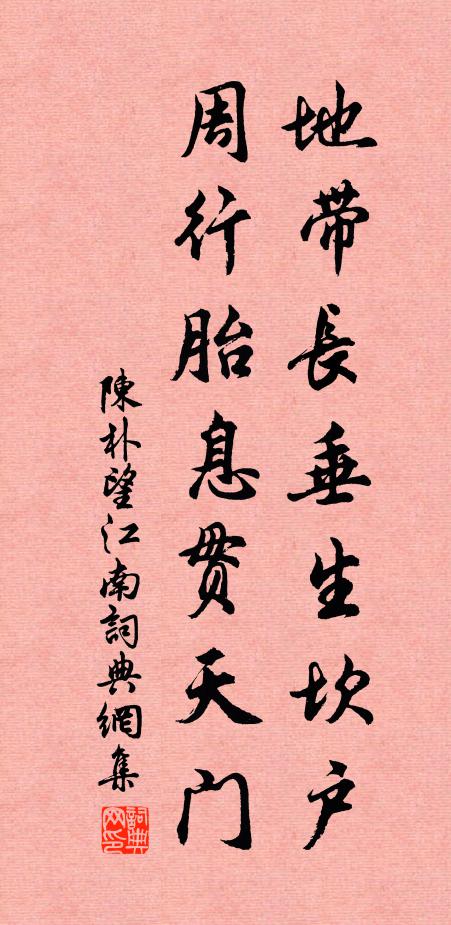 地带長垂生坎户
周行胎息贯天门
陳朴望江南詞典網集
詞典网印